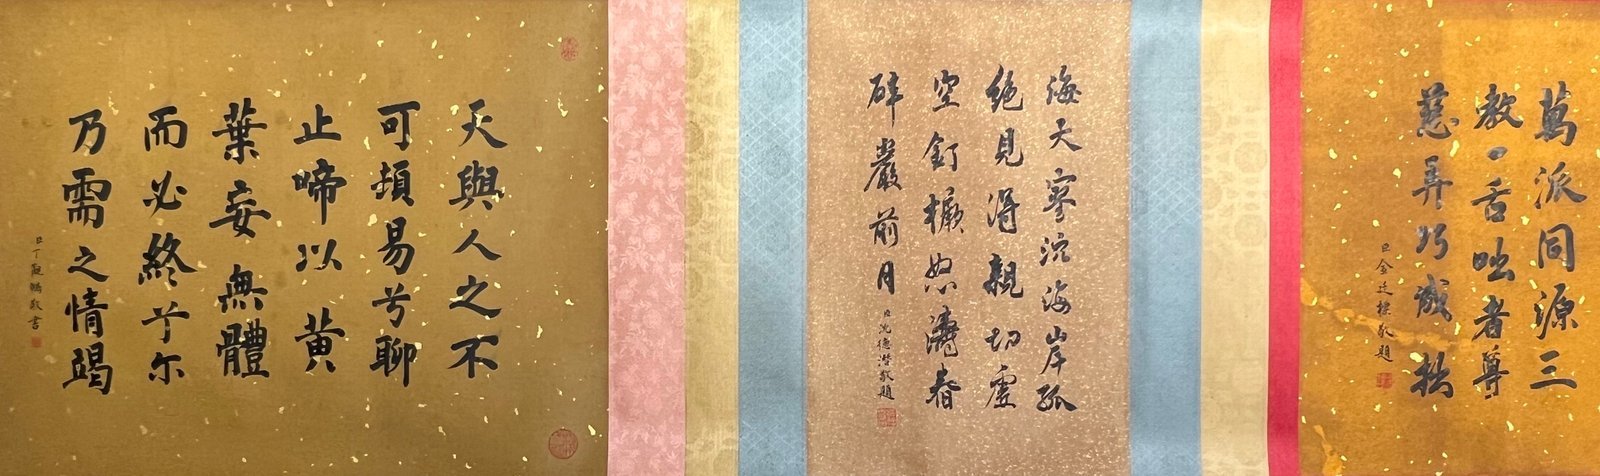 萬派同源三
教〻舌咄者尊
慈弄巧誠拙
臣金廷標敬題
海天寥泬海岸孤
絶見得親切虛
空釘橛怒濤春
碎巖前月
臣沈德潛敬題
天與人之不
可頻易兮聊
止啼以黄
葉妄無體
而必終乎尔
乃需之情竭
臣丁觀鵬敬書